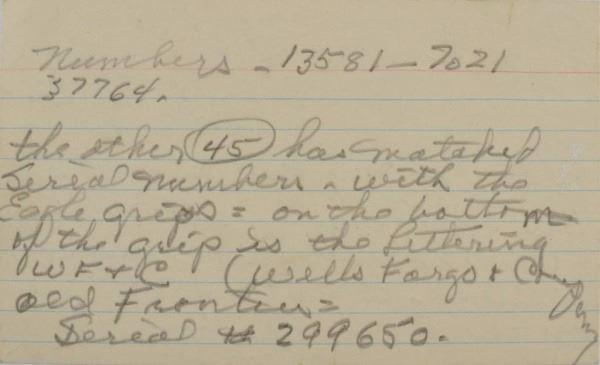 Numbers - 13581 - 7021
37764.
the other 45 has matched
Serial numbers - with the
Eagle grips = on the bottom
of the grip is the lettering
WF + C (Wells Fargo + Company
old Frontier =
Serial # 299650.